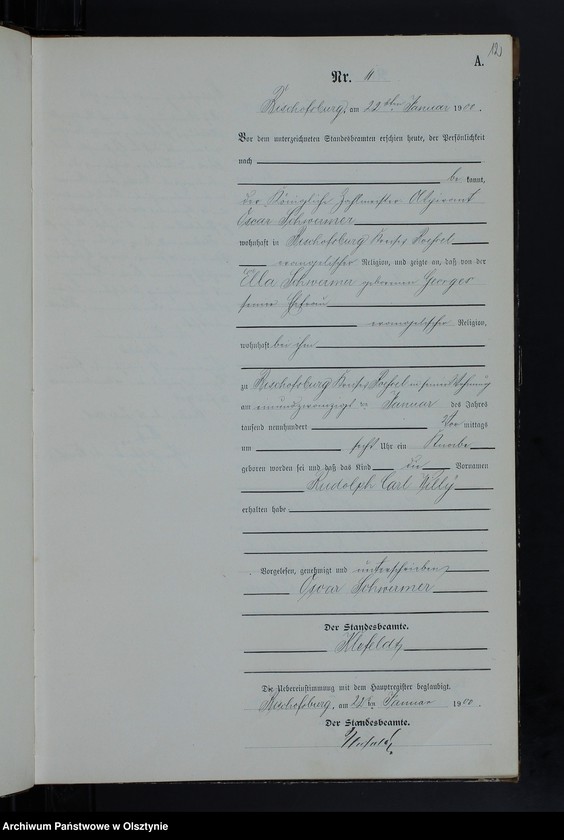 12
A.
Nr. 11
Bischofsburg, am 22ten Januar 1900.
Vor dem unterzeichneten Standesbeamten erschien heute, der Persönlichkeit
nach
be kannt,
der Königliche Zahlmeister Aspirant
Oscar Schwermer
wohnhaft in Bischofsburg Kreises Roessel
evangelischer Religion, und zeigte an, daß von der
Ella Schwermer geborenen George
seiner Ehefrau
evangelischer Religion,
wohnhaft bei ihm
zu Bischofsburg Kreises Roessel in seiner Wohnung
am einundzwanzigsten Januar des Jahres
tausend neunhundert Vor mittags
um sechs Uhr ein Knabe
geboren worden sei und daß das Kind die Vornamen
Rudolph Carl Willy
erhalten habe
Vorgelesen, genehmigt und unterschrieben
Oscar Schwermer
Der Standesbeamte.
Die Uebereinstimmung mit dem Hauptregister beglaubigt.
Bischofsburg, am 22ten Januar 1900.
Der Standesbeamte.
Archiwum Państwowe w Olsztynie